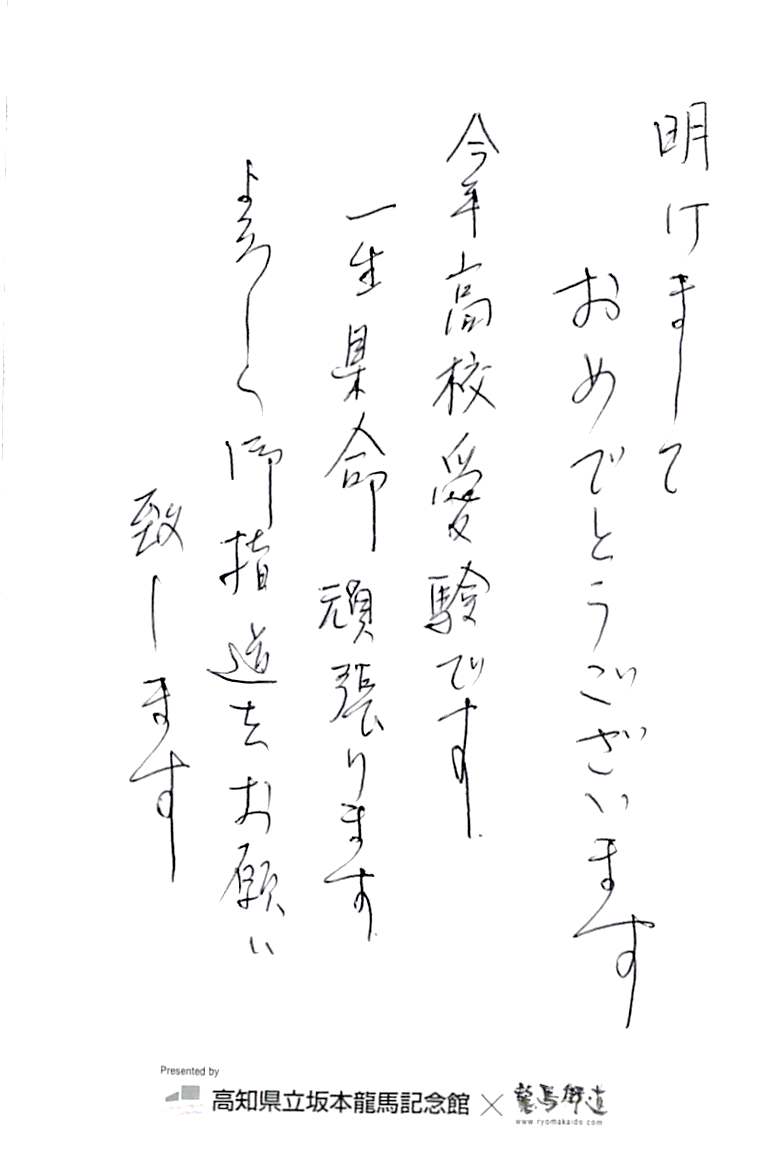 明けまして
おめでとうございます
今年高校受験です
一生県命頑張ります
よろしく御指導をお願い
致します
Presented by
高知県立坂本龍馬記念館×龍馬街道
www.ryomakaido.com